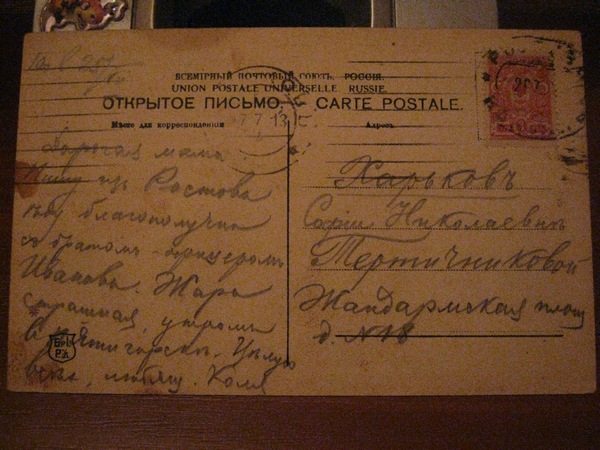 ВСЕМІРНЫЙ ПОЧТОВЫЙ СОЮЗЪ. РОССІЯ.
UNION POSTALE UNIVERSELLE. RUSSIE.
ОТКРЫТОЕ ПИСЬМО. CARTE POSTALE.
Мѣсто для корреспонденціи
7 7 13
Дорогая мама
Пишу изъ Ростова
ѣду благополучно
съ братомъ офицеромъ
Иванова. Жара
страшная, утромъ
въ Пятигорскѣ. Цѣлую
всѣхъ, любящ. Коля
Адресъ.
Харьковъ
Софіи Николаевнѣ
Тертичниковой
Жандармская площ
д. N 18